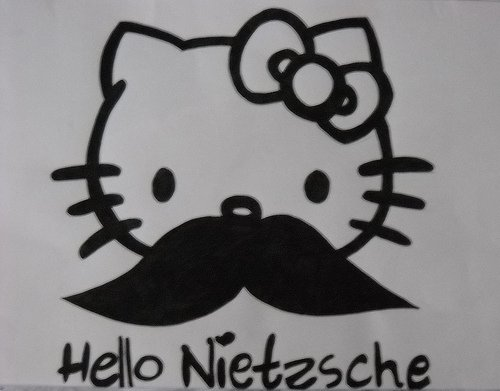 Hello Nietzsche